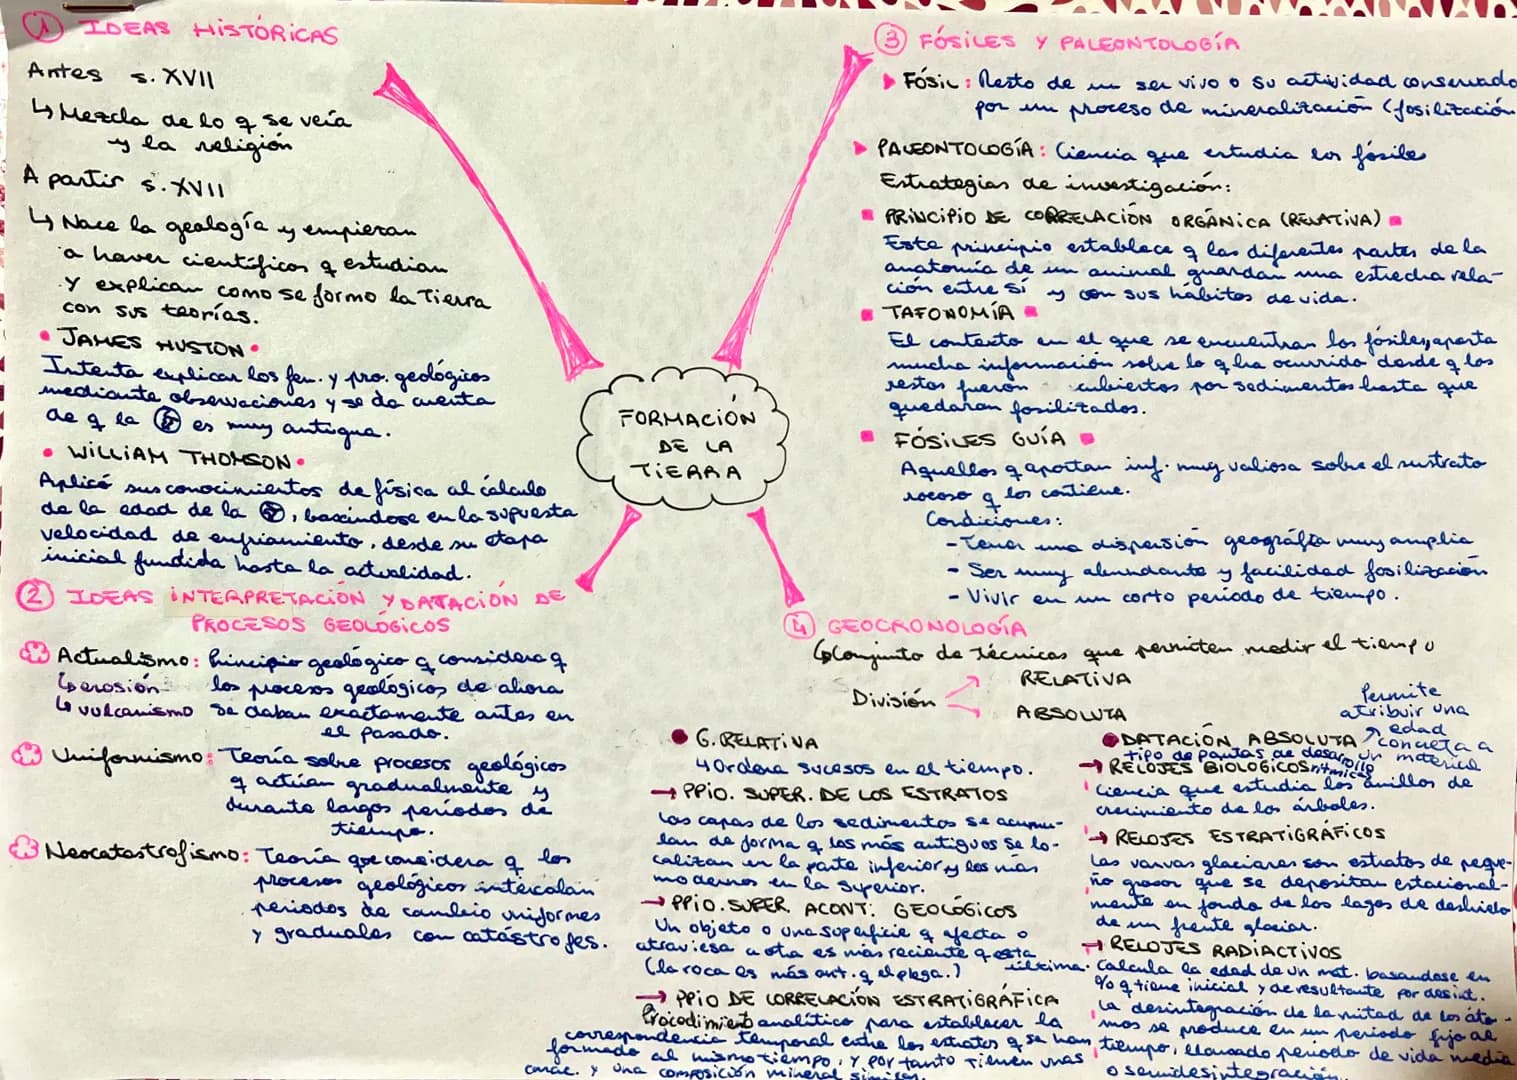 1 IDEAS HISTÓRICAS
Antes s. XVII
↳ Mezcla de lo q se veía
y la religión
A partir s. XVII
↳ Nace la geología y empiezan
a haver científicos q estudian
y explican como se formo la Tierra
con sus teorías.
• JAMES HUSTON •
Intenta explicar los fen. y pro. geológicos
mediante observaciones y se da cuenta
de q la es muy antigua.
• WILLIAM THOMSON •
Aplicó sus conocimientos de física al cálculo
de la edad de la , basándose en la supuesta
velocidad de enfriamiento, desde su etapa
inicial fundida hasta la actualidad.
2 IDEAS INTERPRETACIÓN Y DATACIÓN DE
PROCESOS GEOLÓGICOS
Actualismo: Principio geológico q considera q
↳ erosión los procesos geológicos de ahora
↳ vulcanismo se daban exactamente antes en
el pasado.
Uniformismo: Teoría sobre procesos geológicos
q actúan gradualmente y
durante largos períodos de
tiempo.
Neocatastrofismo: Teoría que considera q los
procesos geológicos intercalan
periodos de cambio uniformes
y graduales con catástrofes.
FORMACIÓN
DE LA
TIERRA
3 FÓSILES Y PALEONTOLOGÍA
▸ FÓSIL: Resto de un ser vivo o su actividad conservado
por un proceso de mineralización (fosilización
▸ PALEONTOLOGÍA: Ciencia que estudia los fósiles
Estrategias de investigación:
▪ PRINCIPIO DE CORRELACIÓN ORGÁNICA (RELATIVA) ▪
Este principio establece q las diferentes partes de la
anatomía de un animal guardan una estrecha rela-
ción entre sí y con sus hábitos de vida.
▪ TAFONOMÍA ▪
El contexto en el que se encuentran los fósiles, aporta
mucha información sobre lo q ha ocurrido desde q los
restos fueron cubiertos por sedimentos hasta que
quedaran fosilizados.
▪ FÓSILES GUÍA ▪
Aquellos q aportan inf. muy valiosa sobre el sustrato
rocoso q los contiene.
Condiciones:
- Tener una dispersión geográfia muy amplia
- Ser muy abundante y facilidad fosilización
- Vivir en un corto período de tiempo.
4 GEOCRONOLOGÍA
↳ Conjunto de técnicas que permiten medir el tiempo
División → RELATIVA
→ ABSOLUTA
• G. RELATIVA
↳ Ordena sucesos en el tiempo.
→ PPIO. SUPER. DE LOS ESTRATOS
Las capas de los sedimentos se acumu-
lan de forma q las más antiguos se lo-
calizan en la parte inferior y los más
modernos en la superior.
→ PPIO. SUPER. ACONT. GEOLÓGICOS
Un objeto o una superficie q afecta o
atraviesa a otra es más reciente q esta
última.
(la roca es más ant. q el plega.)
→ PPIO DE CORRELACIÓN ESTRATIGRÁFICA
Procedimiento analítico para establecer la
correspondencia temporal entre los estratos q se han
formado al mismo tiempo, y por tanto tienen unas
carac. y una composición mineral similar.
• DATACIÓN ABSOLUTA
Permite
atribuir una
edad
concreta a
un material
tipo de pautas de desarrollo
rítmicas
→ RELOJES BIOLÓGICOS
Ciencia que estudia los anillos de
crecimiento de los árboles.
→ RELOJES ESTRATIGRÁFICOS
Las varvas glaciares son estratos de peque-
ño grosor que se depositan estacional-
mente en fondo de los lagos de deshielo
de un frente glaciar.
→ RELOJES RADIACTIVOS
Calcula la edad de un mat. basandose en
% q tiene inicial y de resultante por desint.
La desintegración de la mitad de los áto-
mos se produce en un periodo fijo al
tiempo, llamado periodo de vida media
o semidesintegración.